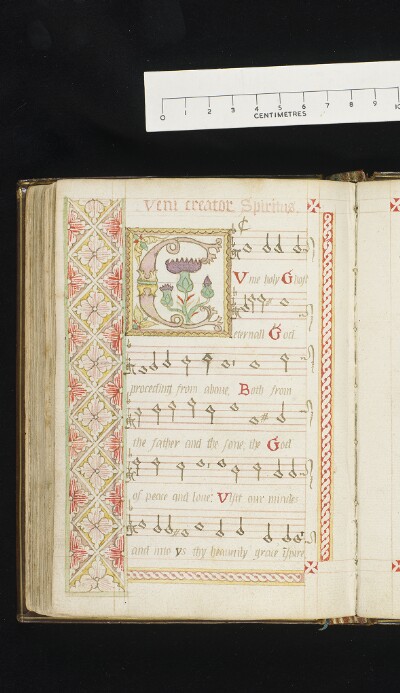 0 1 2 3 4 5 6 7 8 9 10
CENTIMETRES
Veni creator Spiritus.
Vme holy Ghost
eternall God
proceeding from aboue, Both from
the father and the sone, thy God
of peace and loue: Visit our mindes
and into ys thy heauenly grace